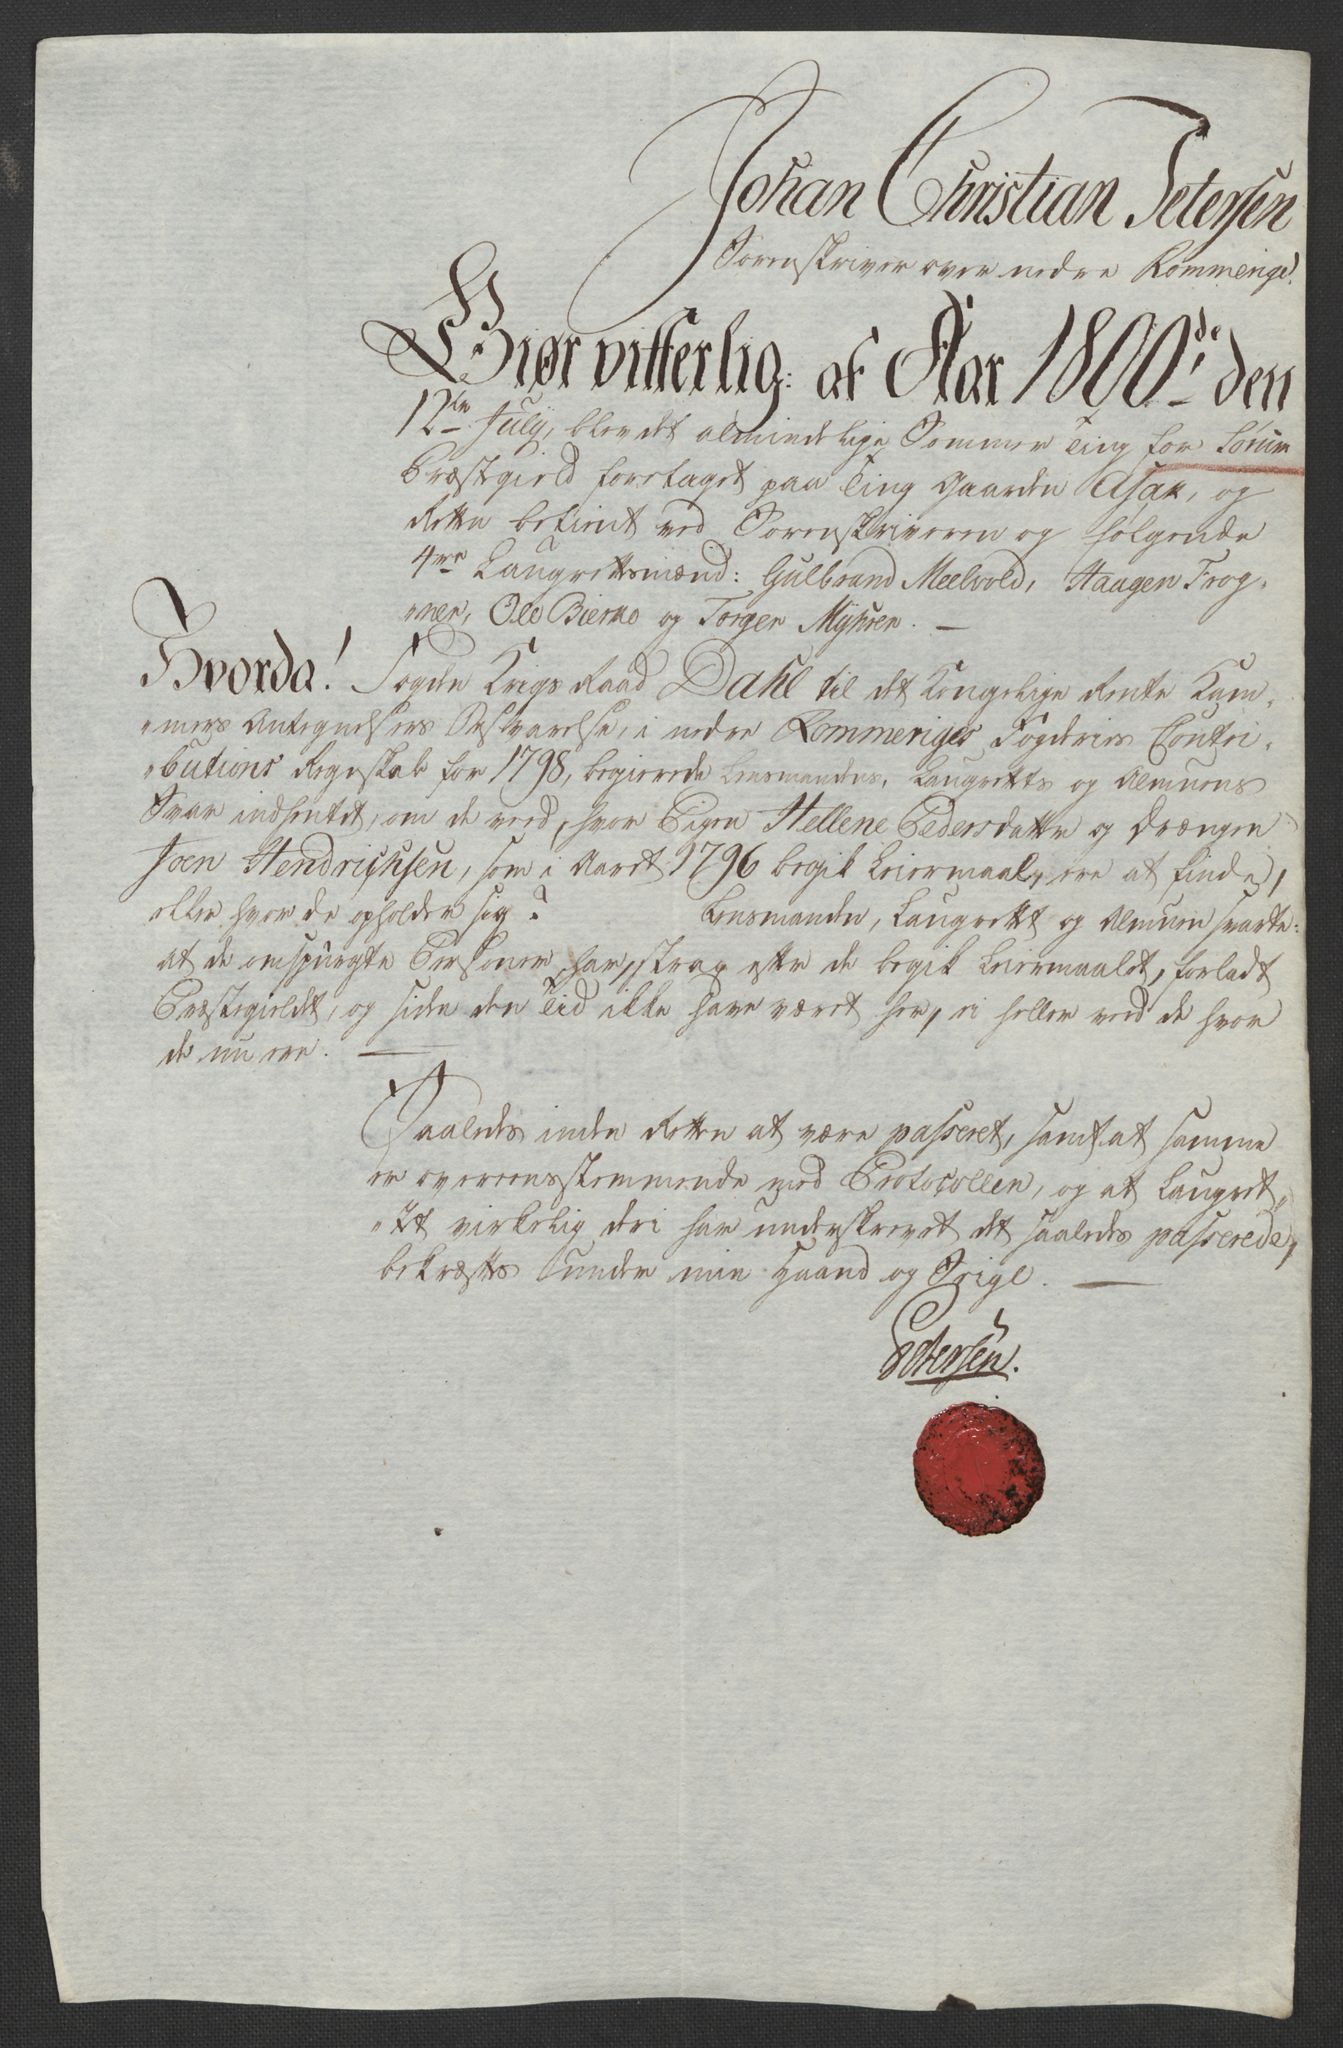 Johan Christian Petersen
Sorenskriver over nedre Rommerige!
Giør vitterlig: at Aar 1800de den
12te July, blev det almindelige Sommer Ting for Sørum
Præstegield foretaget paa Ting Gaarden Asak, og
Retten betient ved Sorenskriveren og følgende
4re Laugrettsmænd: Gulbrand Meelvold, Haagen Frog„
„ner, Ole Bierke og Torger Myhrer. —
Hvorda! Fogden Krigs Raad Dahl til det Kongelige Rente Kam„
„mers Antegnelsers Besvarelse, i nedre Rommeriges Fogderies Contri„
„butions Regnskab for 1798, begierede Lensmandens, Laugretts og Almuens
Svar indhentet, om de veed, hvor Pigen Hellene Pedersdatter og Drængen
Joen Hendrichsen, som i Aaret 1796 begik Leiermaal, ere at finde,
eller hvor de opholder sig? Lensmanden, Laugrett og Almuen svarte:
at de omspurgte Personer, har, strax efter de begik Leiermaalet, forladt
Præstegieldet, og siden den Tid ikke have været her, ei heller veed de hvor
de nu ere. —
Saaledes inden Retten at være passeret, samt at samme
er overeensstemmende med Protocollen, og at Laugret„
„tet virkelig deri har underskrevet det saaledes passerede,
bekræftes under min Haand og Seigl. —
Petersen.